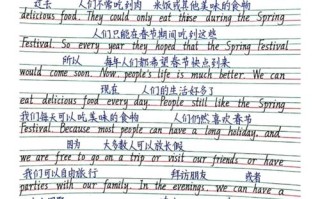 过去 人们不常吃到肉 米饭或其他美味的食物
delicious food. They could only eat these during the Spring
人们只能在春节期间吃到这些
Festival. So every year they hoped that the Spring Festival
所以 每年人们都希望春节快点到来
would come soon. Now people's life is much better. We can
现在 人们的生活好多了
eat delicious food every day. People still like the Spring
我们每天可以吃美味的食物 人们仍然喜欢春节
Festival. Because most people can have a long holiday, and
因为 大多数人可以放长假
we are free to go on a trip or visit our friends or have
我们可以自由旅行 拜访朋友 或者
parties with our family. In the evenings, we can have a